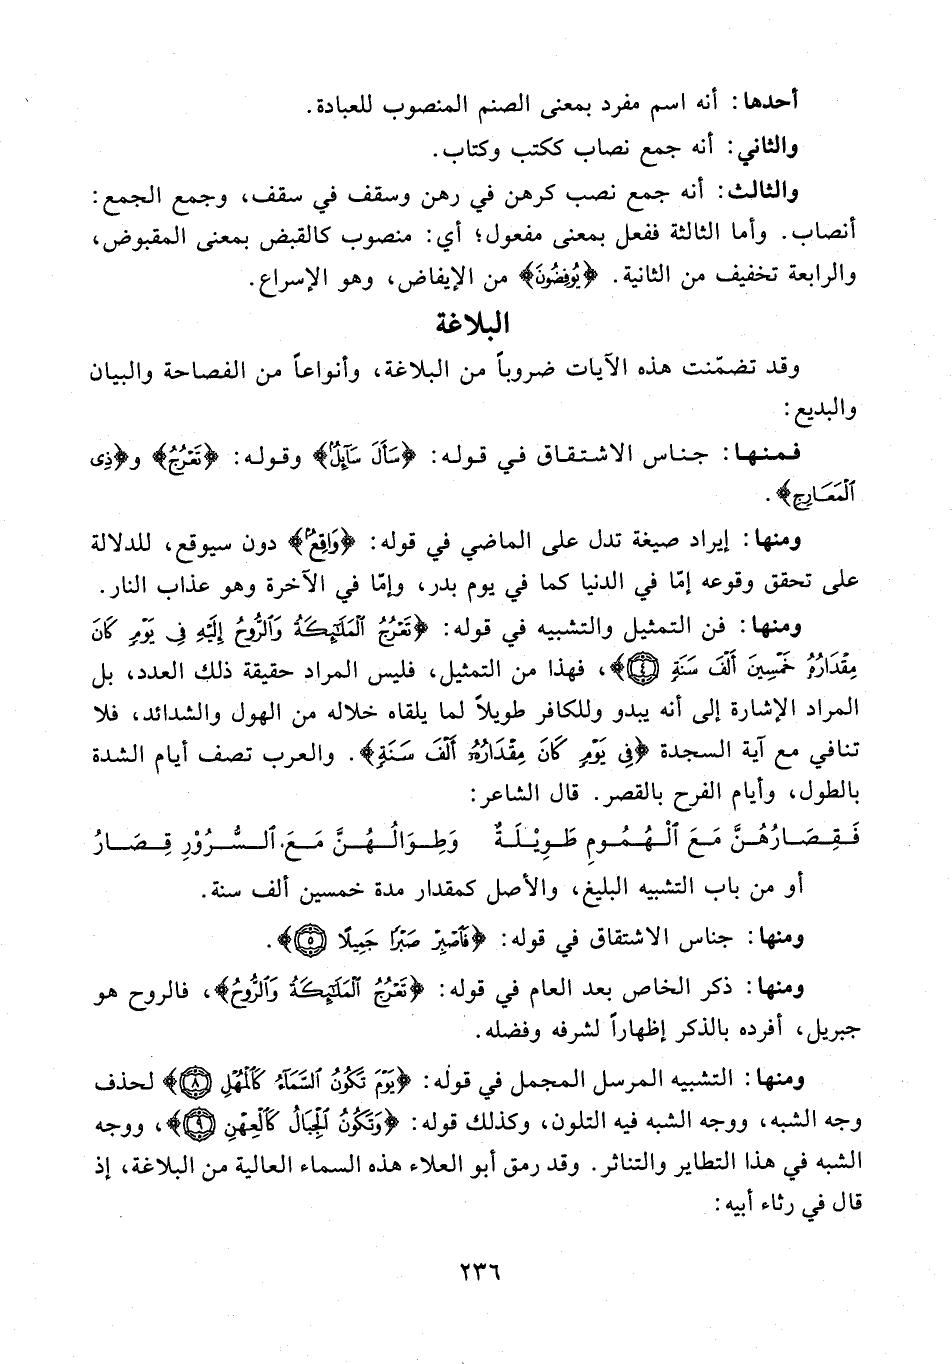 أحدها: أنه اسم مفرد بمعنى الصنم المنصوب للعبادة.
والثاني: أنه جمع نصاب ككتب وكتاب.
والثالث: أنه جمع نصب كرهن في رهن وسقف في سقف، وجمع الجمع:
أنصاب. وأما الثالثة ففعل بمعنى مفعول؛ أي: منصوب كالقبض بمعنى المقبوض،
والرابعة تخفيف من الثانية. ﴿يُوفِضُونَ﴾ من الإيفاض، وهو الإسراع.
البلاغة
وقد تضمّنت هذه الآيات ضروباً من البلاغة، وأنواعاً من الفصاحة والبيان
والبديع:
فمنها: جناس الاشتقاق في قوله: ﴿سَأَلَ سَآئِلٌ﴾ وقوله: ﴿تَعْرُجُ﴾ و﴿ذِى
ٱلْمَعَارِجِ﴾.
ومنها: إيراد صيغة تدل على الماضي في قوله: ﴿وَاقِعٍ﴾ دون سيوقع، للدلالة
على تحقق وقوعه إمّا في الدنيا كما في يوم بدر، وإمّا في الآخرة وهو عذاب النار.
ومنها: فن التمثيل والتشبيه في قوله: ﴿تَعْرُجُ ٱلْمَلَٰٓئِكَةُ وَٱلرُّوحُ إِلَيْهِ فِى يَوْمٍ كَانَ
مِقْدَارُهُۥ خَمْسِينَ أَلْفَ سَنَةٍ ٤﴾، فهذا من التمثيل، فليس المراد حقيقة ذلك العدد، بل
المراد الإشارة إلى أنه يبدو وللكافر طويلاً لما يلقاه خلاله من الهول والشدائد، فلا
تنافي مع آية السجدة ﴿فِى يَوْمٍ كَانَ مِقْدَارُهُۥٓ أَلْفَ سَنَةٍ﴾. والعرب تصف أيام الشدة
بالطول، وأيام الفرح بالقصر. قال الشاعر:
فَقِصَارُهُنَّ مَعَ ٱلْهُمُومِ طَوِيْلَةٌ وَطِوَالُهُنَّ مَعَ ٱلسُّرُوْرِ قِصَارُ
أو من باب التشبيه البليغ، والأصل كمقدار مدة خمسين ألف سنة.
ومنها: جناس الاشتقاق في قوله: ﴿فَٱصْبِرْ صَبْرًا جَمِيلًا ٥﴾.
ومنها: ذكر الخاص بعد العام في قوله: ﴿تَعْرُجُ ٱلْمَلَٰٓئِكَةُ وَٱلرُّوحُ﴾، فالروح هو
جبريل، أفرده بالذكر إظهاراً لشرفه وفضله.
ومنها: التشبيه المرسل المجمل في قوله: ﴿يَوْمَ تَكُونُ ٱلسَّمَآءُ كَٱلْمُهْلِ ٨﴾ لحذف
وجه الشبه، ووجه الشبه فيه التلون، وكذلك قوله: ﴿وَتَكُونُ ٱلْجِبَالُ كَٱلْعِهْنِ ٩﴾، ووجه
الشبه في هذا التطاير والتناثر. وقد رمق أبو العلاء هذه السماء العالية من البلاغة، إذ
قال في رثاء أبيه:
٢٣٦